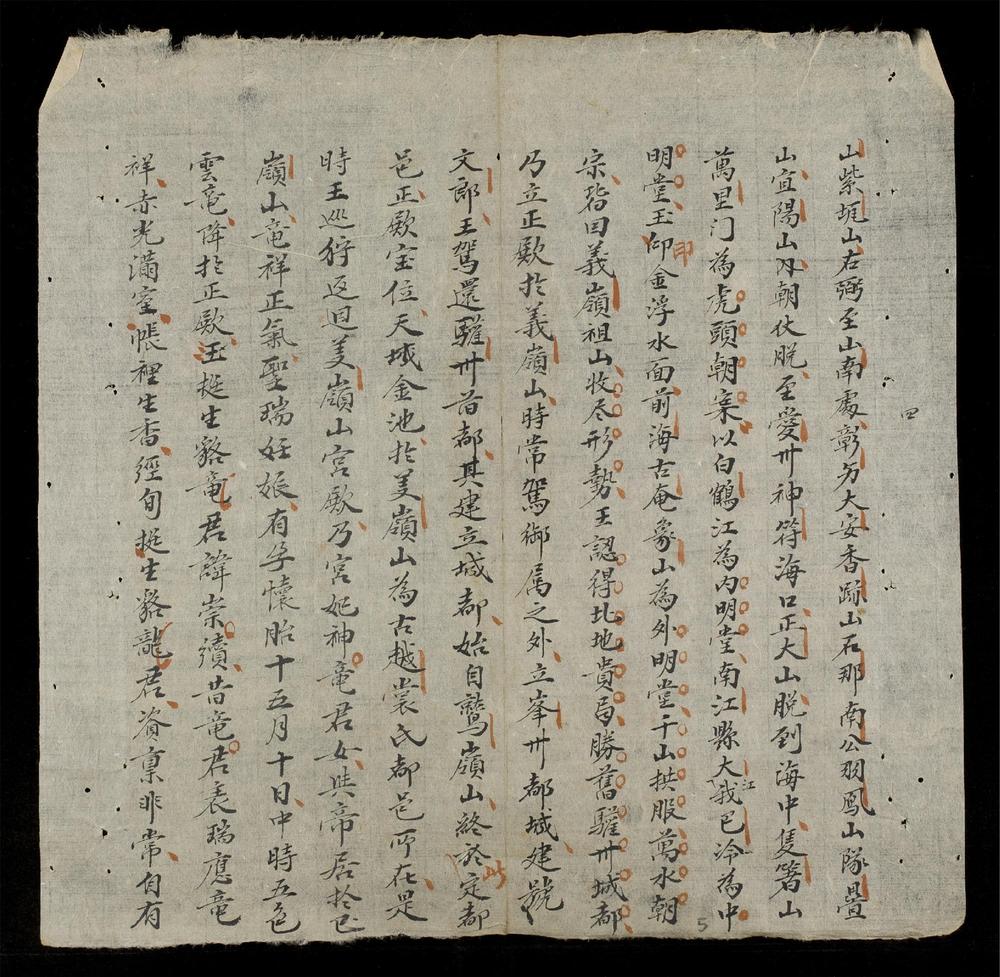 山紫坭山右弼至山南處彰另大安香跡山石那南公羽鳳山隊疊
山宜陽山內朝伏脫至愛州神符海口正大山脫到海中隻箸山
萬里门為虎頭朝案以白鶴江為内明堂南江縣大江我巴冷為中
明堂玉仰印金浮水面前海古庵象山為外明堂千山拱服萬水朝
宗皆囬義嶺祖山收尽形勢王認得此地貴局勝舊驩州城都
乃立正殿於義嶺山時常駕御属之外立峯州都城建號
文郎王駕還驩州首都其建立城都始自鷲嶺山終於此定都
邑正殿宝位天城金池於美嶺山為古越裳氏都邑所在是
時王巡狩返迴美嶺山宮殿乃宮妃神竜君女共帝居於
嶺山竜祥正氣聖瑞妊娠有孕懷胎十五月十日中時五色
雲竜降於正殿玉挺生貉竜君諱崇纘昔竜君表瑞應竜
祥赤光滿室帳裡生香經旬挺生貉龍君資稟非常自有
四
5